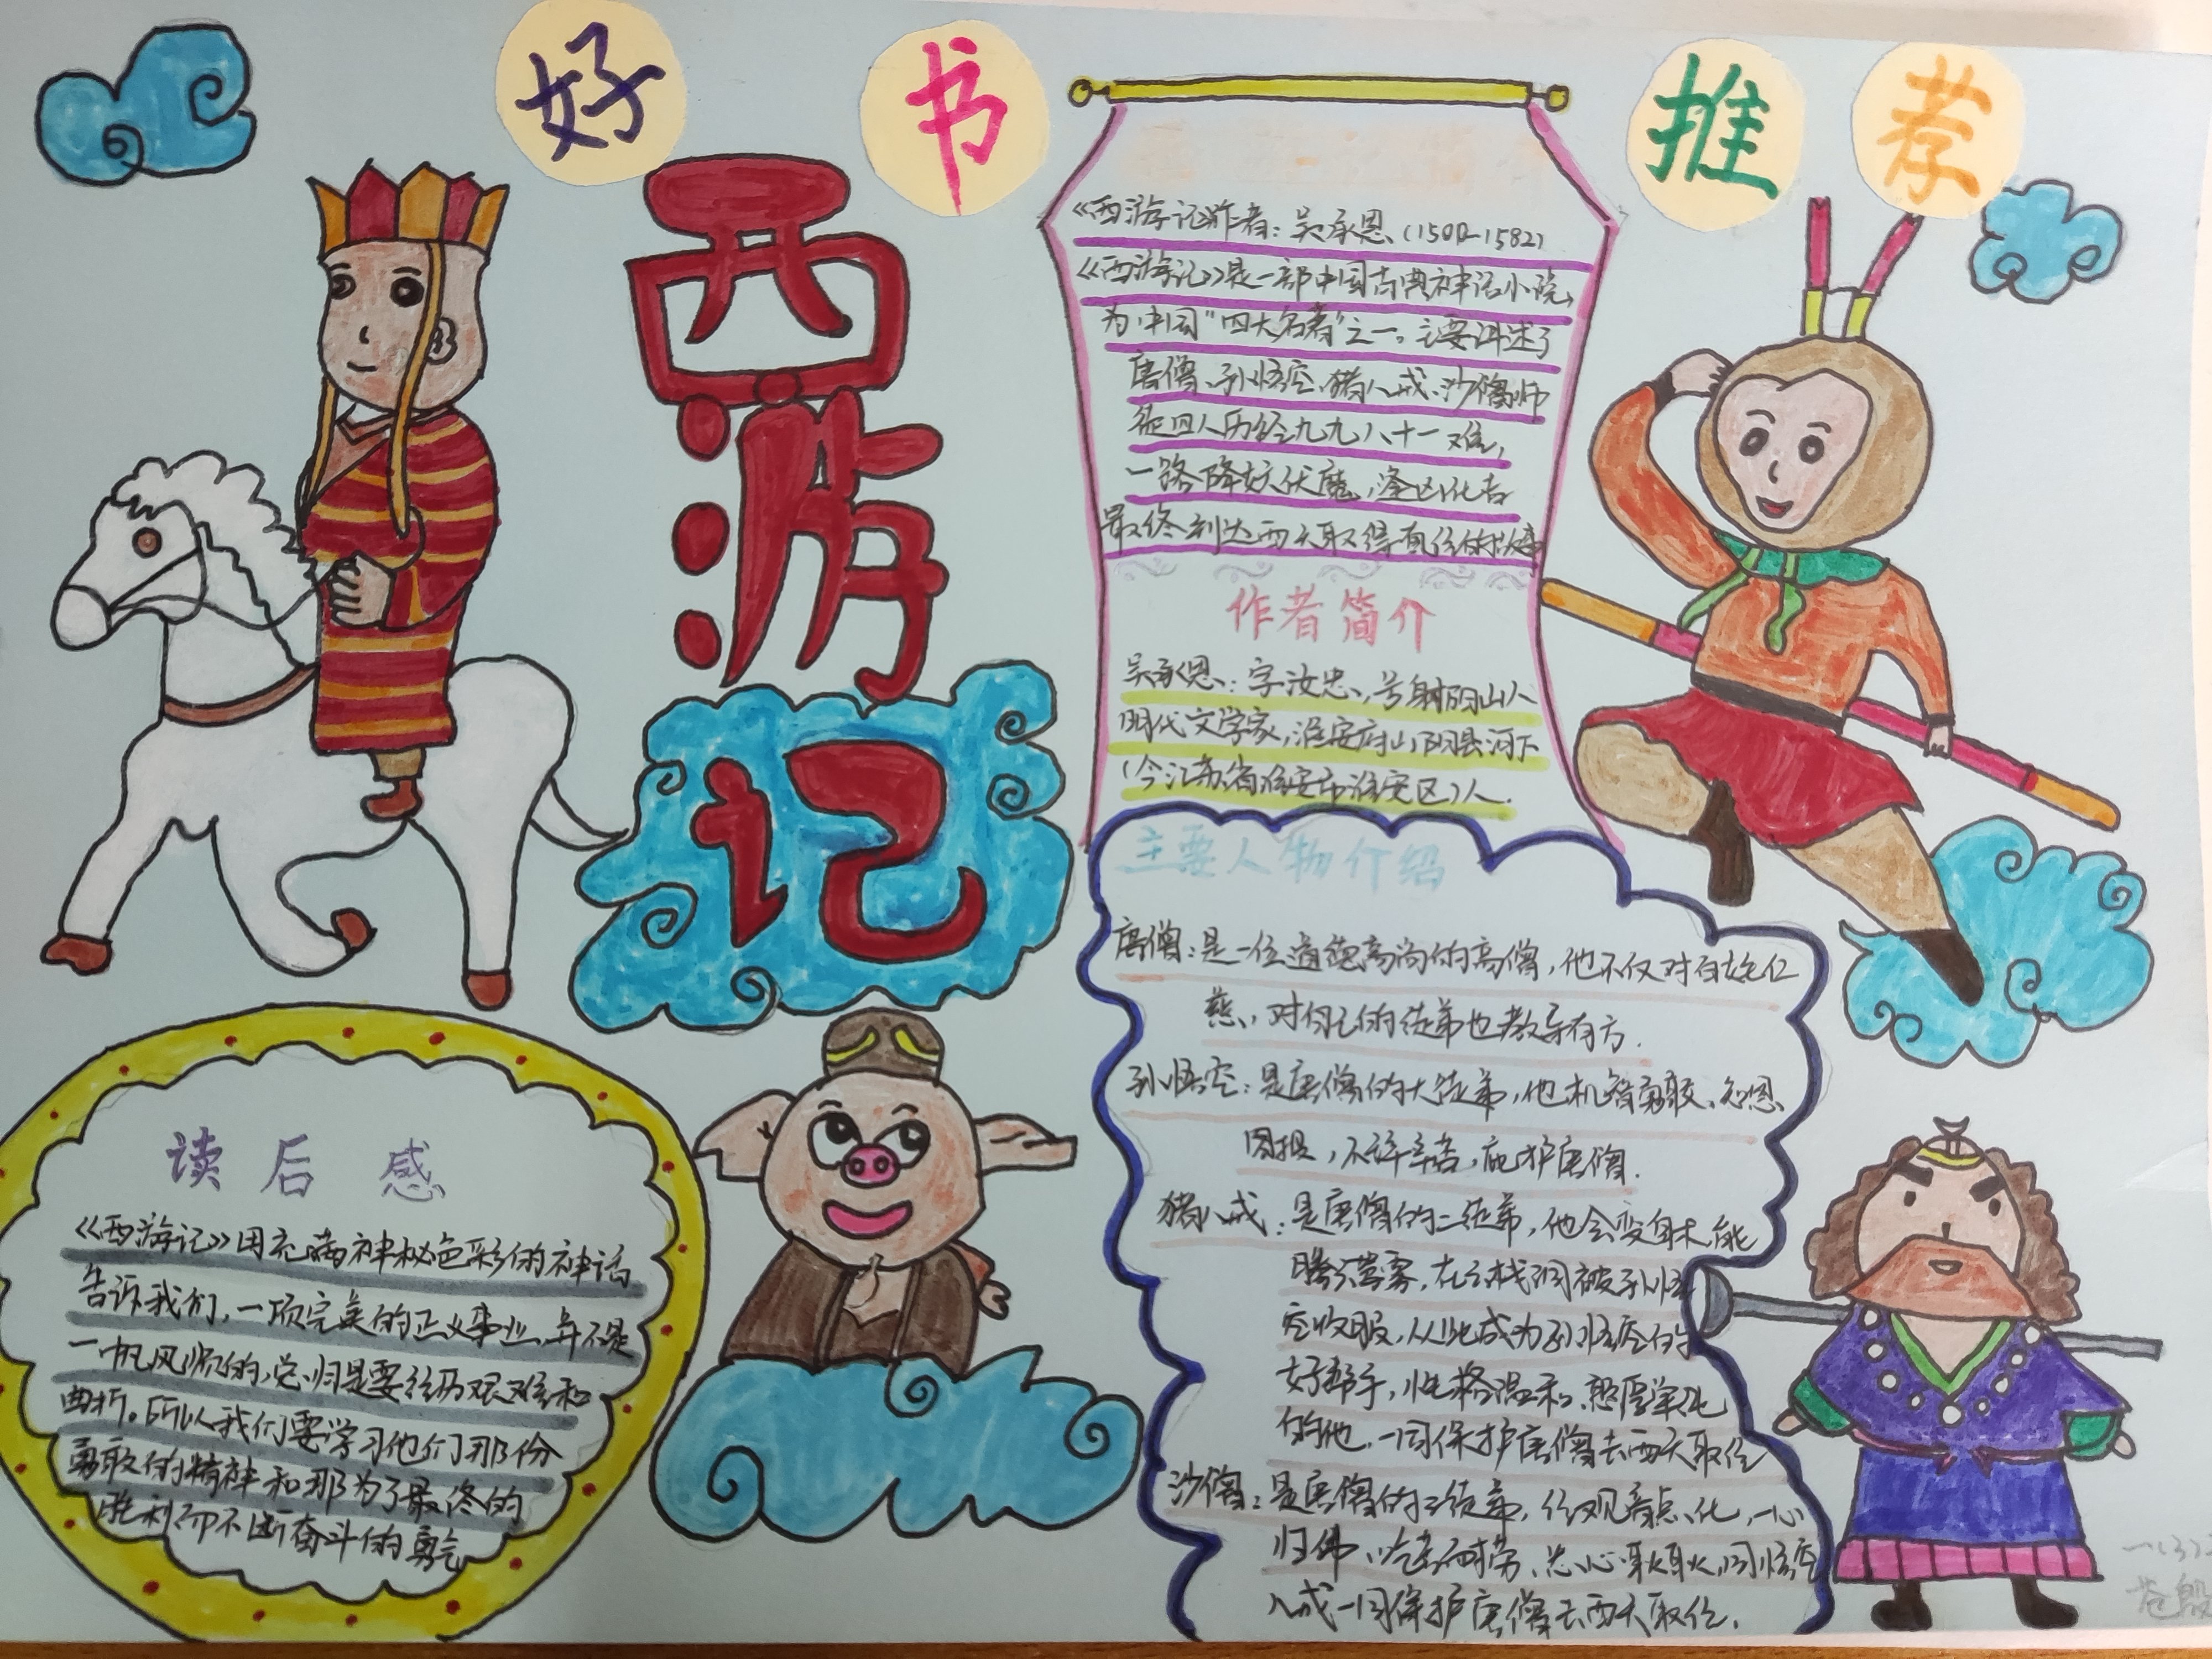 好书推荐
西游记
《西游记》作者：吴承恩（1501-1582）
《西游记》是一部中国古典神话小说，
为中国"四大名著"之一。主要讲述了
唐僧、孙悟空、猪八戒、沙僧师
徒四人历经九九八十一难，
一路降妖伏魔，逢凶化吉
最终到达西天取得真经的故事
作者简介
吴承恩：字汝忠，号射阳山人
明代文学家，淮安府山阴县河下
（今江苏省淮安市淮安区）人.
主要人物介绍
唐僧：是一位道德高尚的高僧，他不仅对百姓仁
慈，对自己的徒弟也教导有方.
孙悟空：是唐僧的大徒弟，他机智勇敢、知恩
图报，不辞辛苦，庇护唐僧.
猪八戒：是唐僧的二徒弟，他会变身术，能
腾云驾雾，在云栈洞被孙悟
空收服，从此成为孙悟空的
好帮手，性格温和、憨厚单纯
的他，一同保护唐僧去西天取经
沙僧：是唐僧的三徒弟，经观音点化，一心
归佛，吃苦耐劳、忠心耿耿，同悟空
八戒一同保护唐僧去西天取经.
读后感
《西游记》用充满神秘色彩的神话
告诉我们，一项完美的正义事业，并不是
一帆风顺的，总归是要经历艰难和
曲折。所以我们要学习他们那份
勇敢的精神和那为了最终的
胜利而不断奋斗的勇气